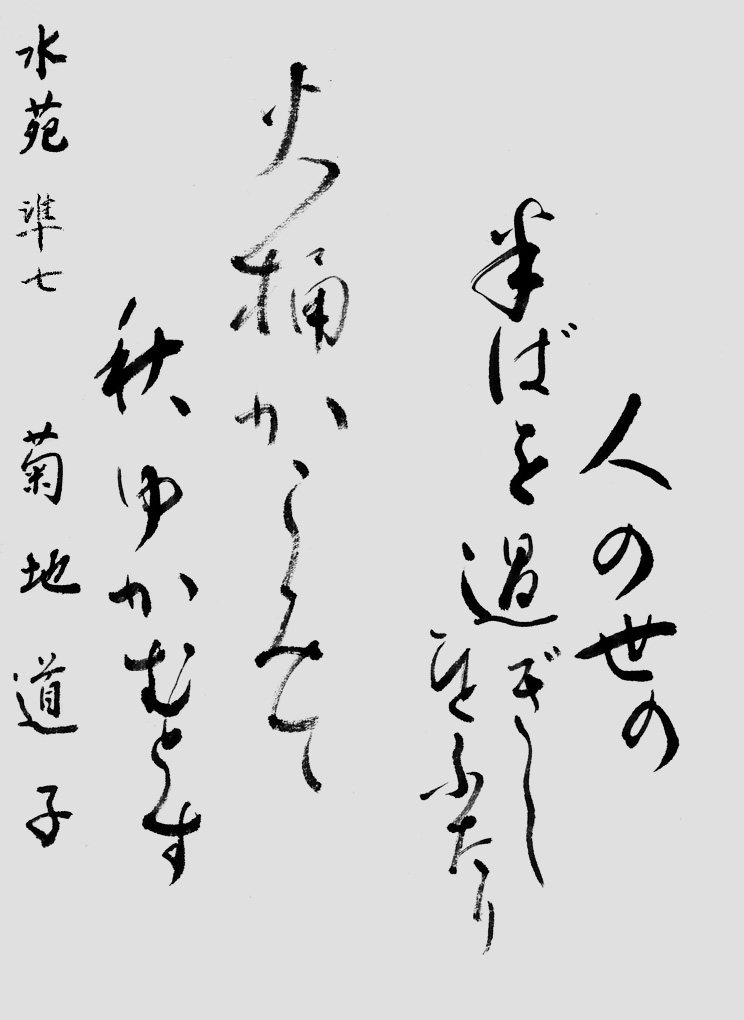 人の世の
半ばを過ぎし
ひとふたり
火桶かこみて
秋ゆかむとす
水苑 準七 菊地道子